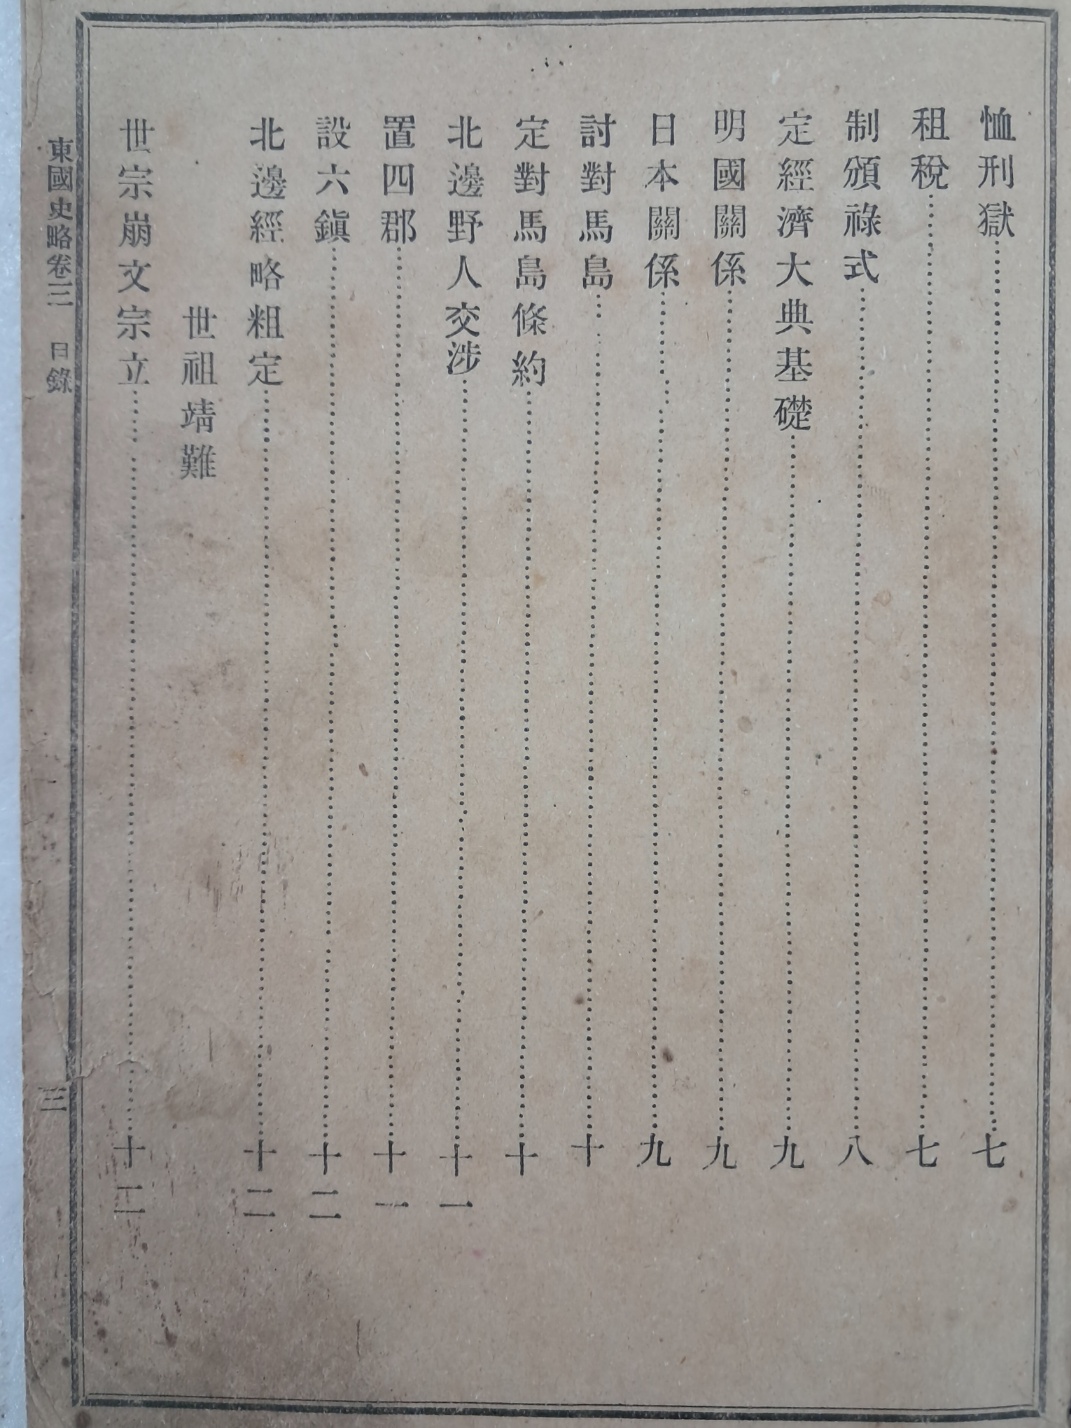 恤刑獄⋯⋯⋯⋯⋯⋯⋯⋯七
租稅⋯⋯⋯⋯⋯⋯⋯⋯七
制頒祿式⋯⋯⋯⋯⋯⋯⋯⋯八
定經濟大典基礎⋯⋯⋯⋯⋯⋯⋯⋯九
明國關係⋯⋯⋯⋯⋯⋯⋯⋯九
日本關係⋯⋯⋯⋯⋯⋯⋯⋯九
討對馬島⋯⋯⋯⋯⋯⋯⋯⋯十
定對馬島條約⋯⋯⋯⋯⋯⋯⋯⋯十
北邊野人交涉⋯⋯⋯⋯⋯⋯⋯⋯十一
置四郡⋯⋯⋯⋯⋯⋯⋯⋯十一
設六鎭⋯⋯⋯⋯⋯⋯⋯⋯十二
北邊經略粗定⋯⋯⋯⋯⋯⋯⋯⋯十二
世祖靖難
世宗崩文宗立⋯⋯⋯⋯⋯⋯⋯⋯十二
東國史略卷三 目錄 三